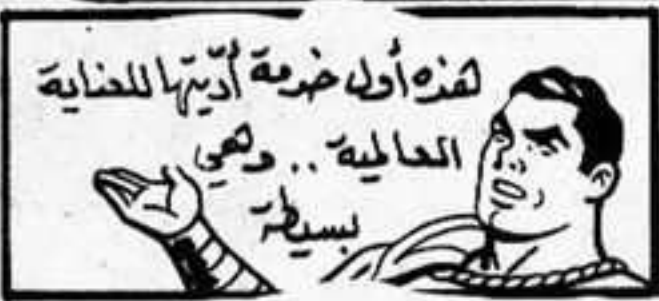 هذه أول خدمة أدّيتها للعناية
العالمية .. وهي
بسيطة